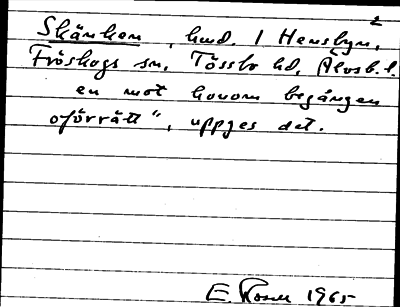 2
Skänken, hmd. 1 Hensbyn,
Fröskogs sn, Tössbo hd, Älvsb. l.
en mot honom begången
oförrätt", uppges det.
E. 1965